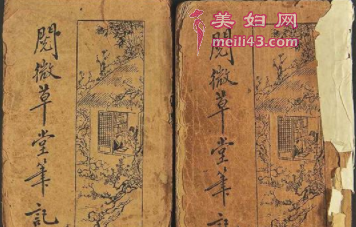 閱微草堂筆記
閱微草堂筆記
美妇网
meili43.com